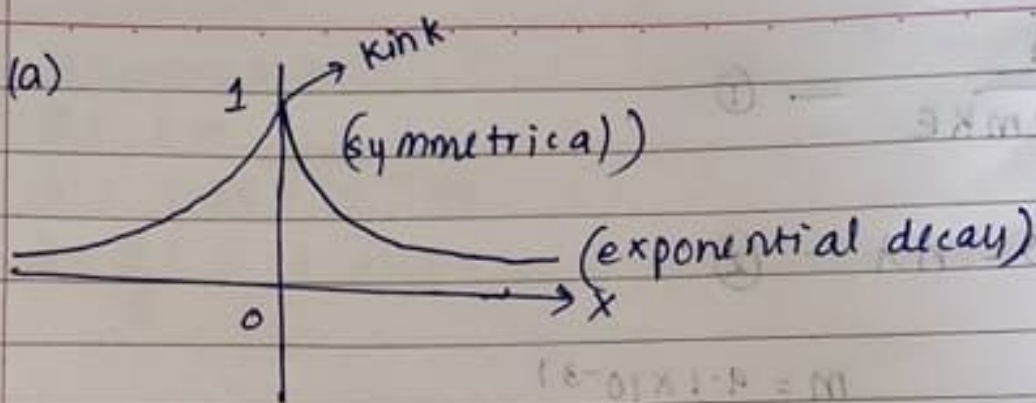 (a)
kink
1
(symmetrical)
(exponential decay)
x
0